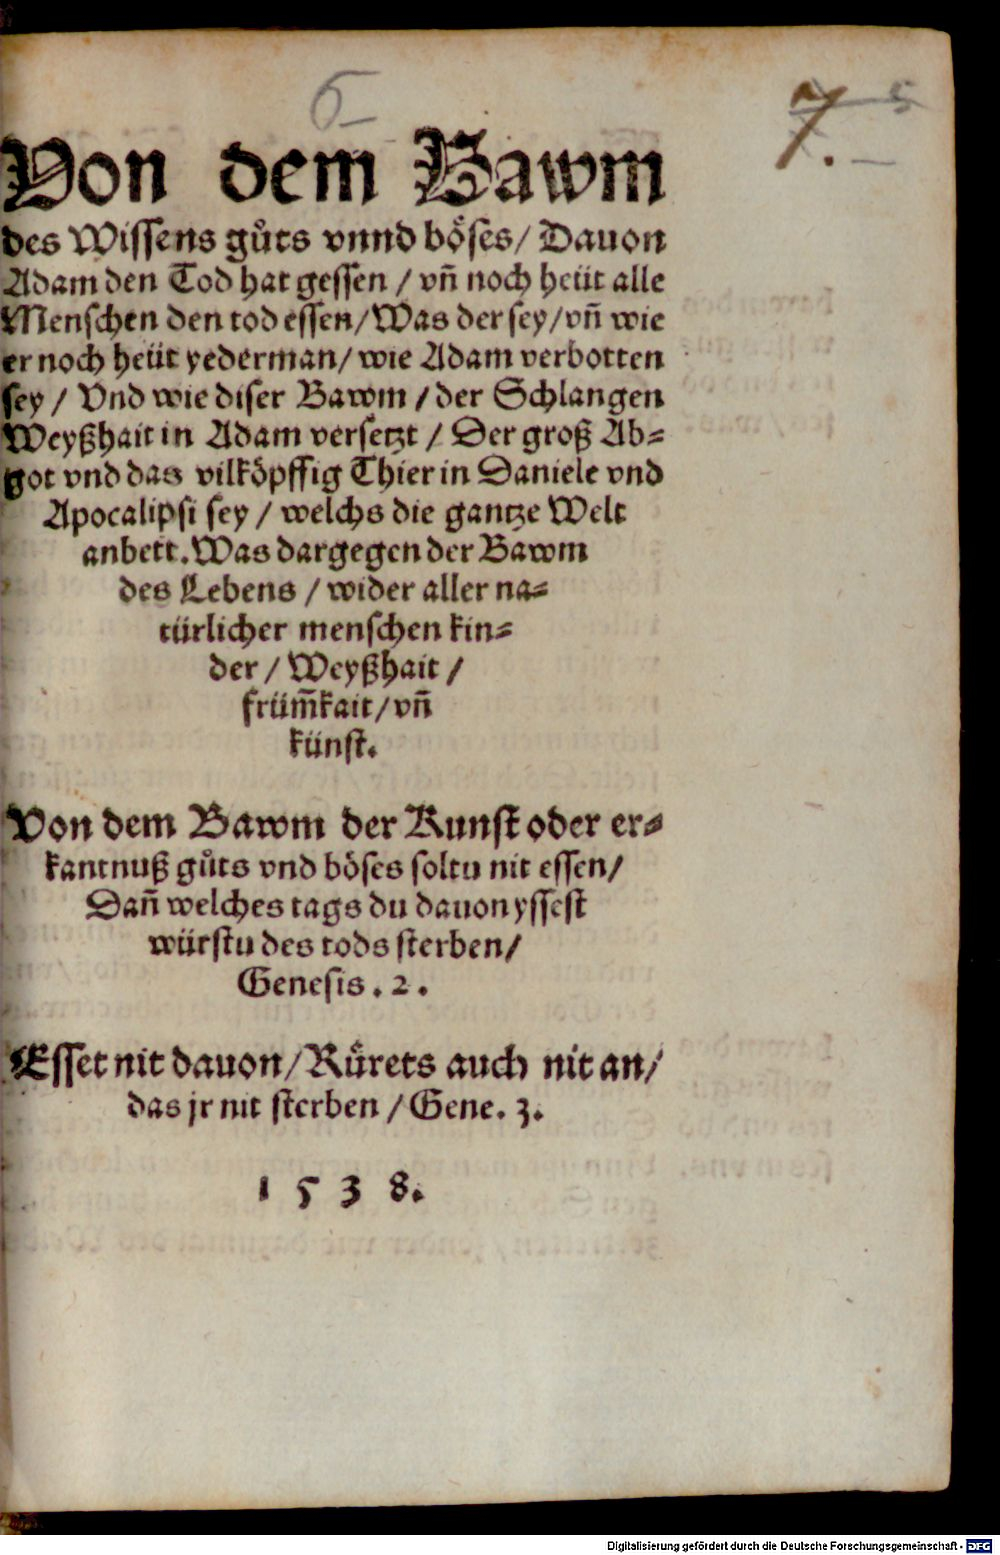 6
7. 5
Von dem Bawm
des Wissens gůts vnnd böses/ Dauon
Adam den Tod hat gessen / vñ noch heüt alle
Menschen den tod essen/ Was der sey/ vñ wie
er noch heüt yederman/ wie Adam verbotten
sey / Vnd wie diser Bawm / der Schlangen
Weyßhait in Adam versetzt / Der groß Ab⸗
got vnd das vilköpffig Thier in Daniele vnd
Apocalipsi sey / welchs die gantze Welt
anbett. Was dargegen der Bawm
des Lebens / wider aller na⸗
türlicher menschen kin⸗
der / Weyßhait /
früm̃kait/ vñ
künst.
Von dem Bawm der Kunst oder er⸗
kantnuß gůts vnd böses soltu nit essen/
Dañ welches tags du dauon yssest
würstu des tods sterben/
Genesis . 2 .
Esset nit dauon/ Rürets auch nit an/
das jr nit sterben / Gene. 3.
1 5 3 8.
Digitalisierung gefördert durch die Deutsche Forschungsgemeinschaft - DFG